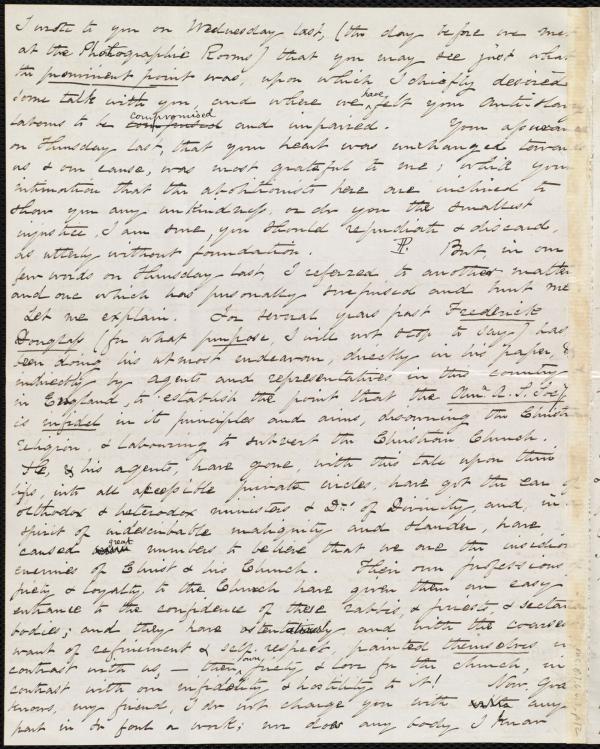 I wrote to you on Wednesday last, (the day before we met
at the Photographic Rooms) that you may see just what
the prominent point was, upon which I chiefly desired
some talk with you, and where we have felt your Anti-Slavery
labours to be compromised and impaired. Your assurance
on Thursday last, that your heart was unchanged towards
us & our cause, was most grateful to me; while your
intimation that the abolitionists here are inclined to
show you any unkindness, or do you the smallest
injustice, I am sure, you should repudiate & discard,
as utterly without foundation. But, in our
few words on Thursday last, I referred to another matter
and one which has personally surprised and hurt me
Let me explain. For several years past Frederick
Douglass (for what purpose, I will not stop to say) has
been doing his utmost endeavour, directly in his paper, &
indirectly by agents and representatives in this country
in England, to establish the point that the Amn. A. S. Socy
is infidel in its principles and aims, disowning the Christian
religion, & labouring to subvert the Christian Church.
He, & his agents, have gone, with this tale upon their
lips, into all accessible private circles, have got the ear of
orthodox & heterodox ministers & Drs. of Divinity, and, in a
spirit of indescribable malignity and slander, have
caused great numbers to believe that we are the insidious
enemies of Christ & his Church. Their own professions of
piety & loyalty to the Church have given them an easy
entrance to the confidence of these rabbis, & priests, & sectarian
bodies; and they have ostentatiously, and with the coarsest
want of refinement & self-respect, painted themselves in
contrast with us, – their own piety & love for the church, in
contrast with our infidelity & hostility to it! Now, God
knows, my friend, I do not charge you with any
part in so foul a work; nor does any body I know